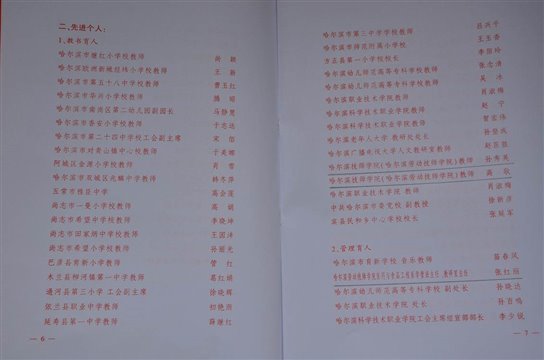 二、先进个人:
1、教书育人
哈尔滨市继红小学校教师
哈尔滨欧洲新城经纬小学校教师 王
哈尔滨市第五十八中学校教师 曹玉红
哈尔滨市华兴小学校教师
哈尔滨市南岗区第二幼儿园副园长 马静夏
哈尔滨市香安小学校教师 于志达
哈尔滨市第二十四中学校工会副主席 宋
哈尔滨市对青山镇中心校教师 于美娜
阿城区金源小学校教师 肖
哈尔滨市双城区兆麟中学教师 韩秀萍
五常市雅臣中学 葛会莲
尚志市一曼小学校教师 高娟
尚志市希望中学校教师 李晓坤
尚志市田家炳中学校教师 王国沣
尚志市希望小学校教师 孙丽光
巴彦县育新小学教师 管红
木兰县柳河镇第一中学教师 葛红娟
通河县第三小学 工会副主席 徐晓辉
依兰县职业中学教师 初艳丽
延寿县第一中学教师 薛继红
— 6 —
哈尔滨市第三中学学校教师 吕兴平
哈尔滨市师范附属小学校 王玉香
方正县第一小学校长 李丽玲
哈尔滨幼儿师范高等专科学校教师 张志清
哈尔滨幼儿师范高等专科学校教师 吴冰
哈尔滨职业技术学院教师 肖淑梅
哈尔滨科学技术职业学院教师 赵宁
哈尔滨科学技术职业学院教师 贺宏伟
哈尔滨老年人大学 教研处处长 孙登成
哈尔滨广播电视大学人文教研室教师 赵臣蕊
哈尔滨技师学院(哈尔滨劳动技师学院)教师 孙秀英
哈尔滨技师学院(哈尔滨劳动技师学院)教师 高歌
哈尔滨职业技术学院 教师 肖淑梅
中共哈尔滨市委党校 副教授 徐新彦
宾县民和乡中心学校校长 张延军
2、管理育人
哈尔滨市育新学校 音乐教师 苗春凤
张红丽
哈尔滨幼儿师范高等专科学校 副处长 孙晓达
哈尔滨职业技术学院 处长 孙百鸣
哈尔滨科学技术职业学院工会主席组宣部部长 李少锐
— 7 —